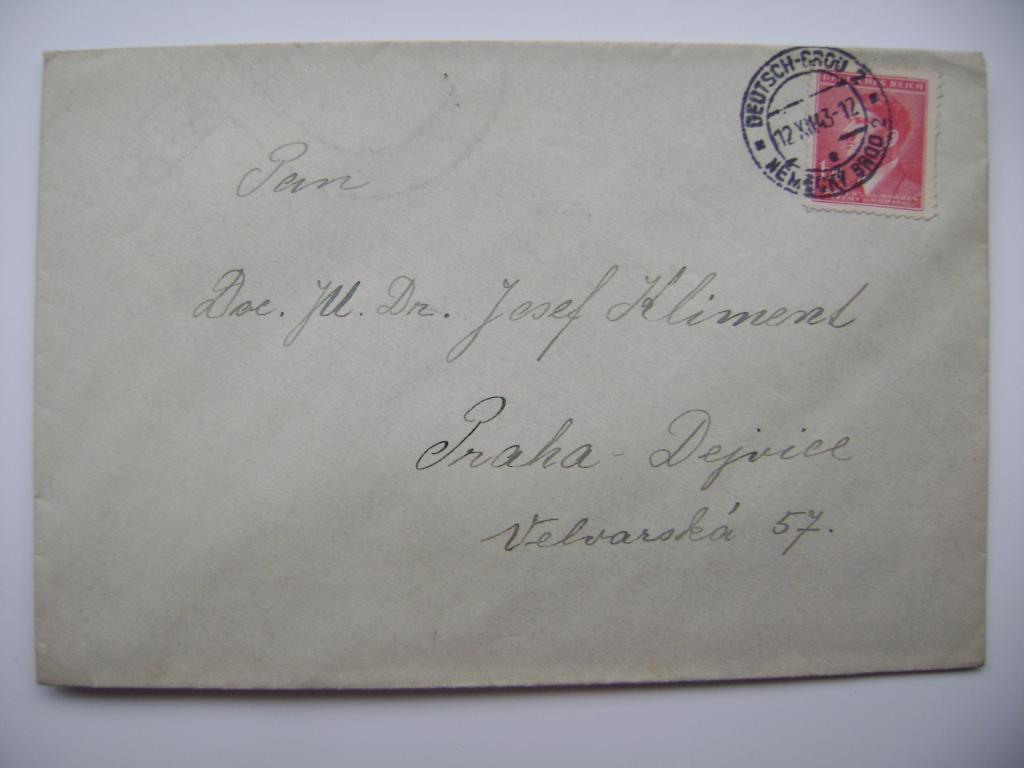 DEUTSCH-BROD 2
12 XII 43-12
NĚMECKÝ BROD 2
DEUTSCHES REICH
Pan
Doc. JU. Dr. Josef Kliment
Praha - Dejvice
Velvarská 57.